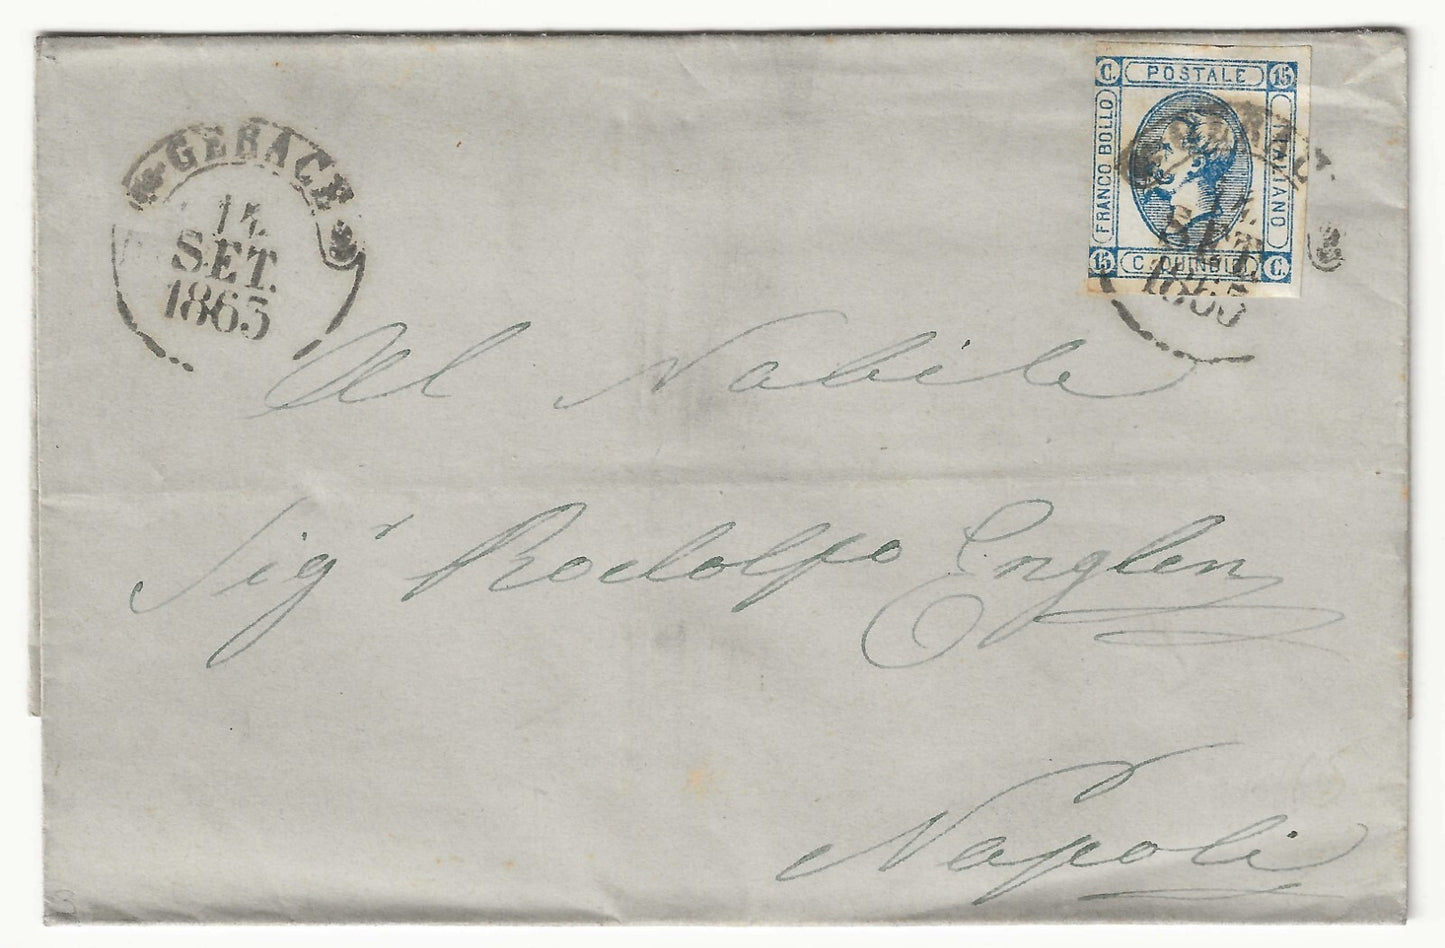 GERACE
14
SET.
1863
C. POSTALE 15
FRANCO BOLLO
ITALIANO
15 C. QUINDICI C.
GERACE
14
SET.
1863
Al Nobile
Sigr Rodolfo Englen
Napoli